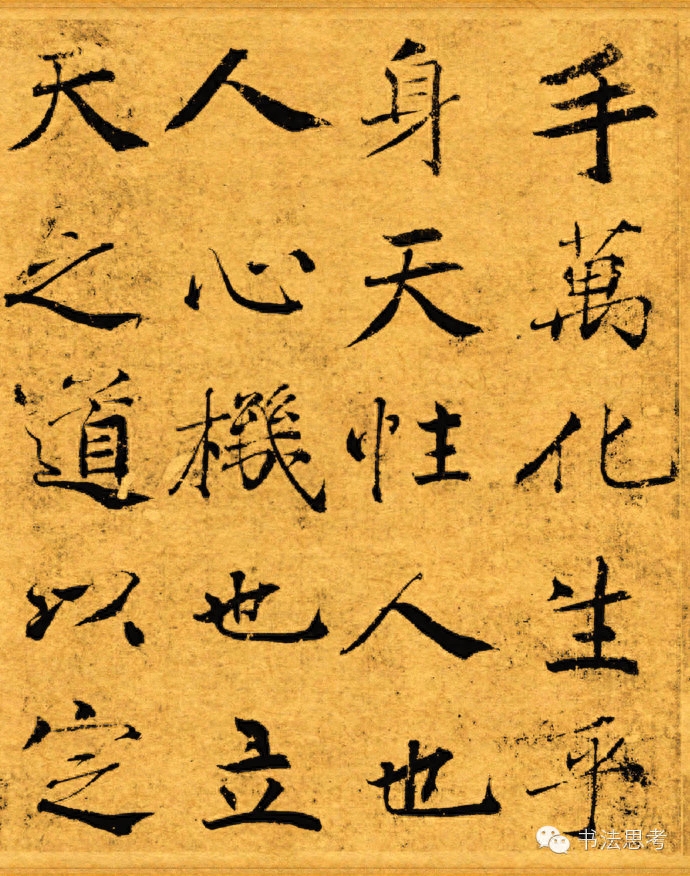 手萬化生乎
身天性人也
人心機也立
天之道以定
书法思考